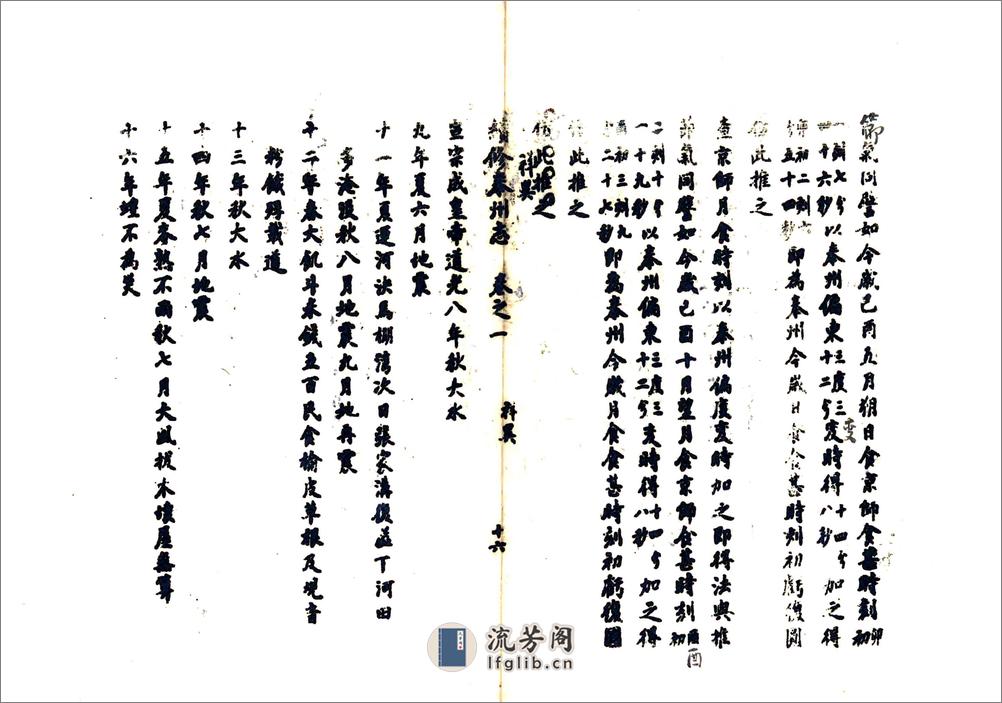 節氣同譬如今歲己酉五月朔日食京師食甚時刻卯初
一刻七分以泰州偏東三度三變時得十四分加之得
四十六秒以泰州偏東十二分變時得八秒加之得
卯初二刻六
分五十四秒即為泰州今歲日食食甚時刻初虧復圓
倣此推之
查京師月食時刻以泰州偏度變時加之即得法與推
節氣同譬如今歲己酉十月望月食京師食甚時刻酉初
二刻十分以泰州偏東三度三變時得十四分加之得
一十九秒以泰州偏東十二分變時得八秒加之得
酉初三刻九
分二十七秒即為泰州今歲月食食甚時刻初虧復圓
倣此推之
倣此推之
祥異
續修泰州志 卷之一 祥異 十六
宣宗成皇帝道光八年秋大水
九年夏六月地震
十一年夏運河決馬棚灣次日張家溝復溢下河田
多淹沒秋八月地震九月地再震
十二年春大飢斗米錢五百民食榆皮草根及觀音
粉餓殍載道
十三年秋大水
十四年秋七月地震
十五年夏麥熟不雨秋七月大風拔木壞屋無算
十六年蝗不為災
變
酉
流芳阁
lfglib.cn